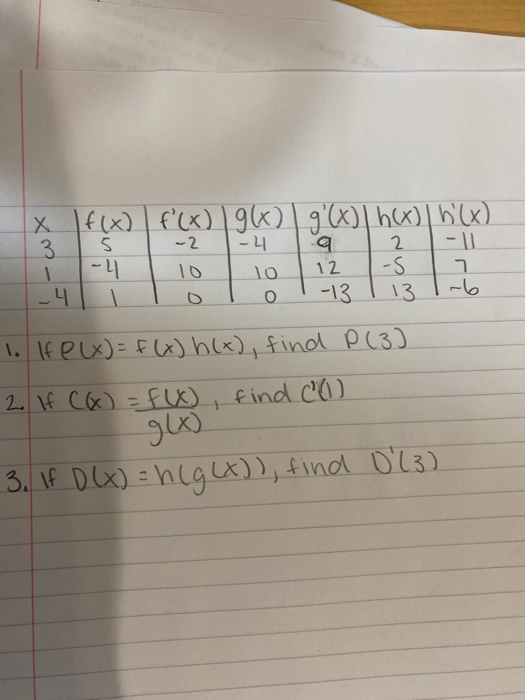 x f(x) f'(x) g(x) g'(x) h(x) h'(x)
3 5 -2 -4 9 2 -11
1 -4 10 10 12 -5 7
-4 1 0 0 -13 13 -6
1. If P(x) = f(x) h(x), find P(3)
2. If C(x) = f(x)/g(x), find C'(1)
3. If D(x) = h(g(x)), find D'(3)